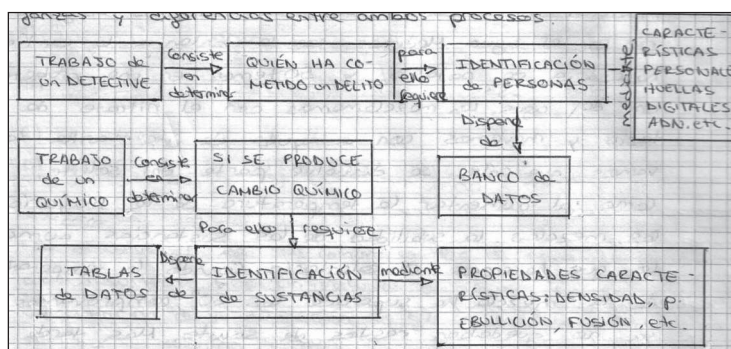 ganzas y diferencias entre ambos procesos.
TRABAJO de
un DETECTIVE
Consiste
en
determinar
QUIÉN HA CO-
METIDO un DELITO
para
ello
requiere
IDENTIFICACIÓN
de PERSONAS
mediante
CARACTE-
RÍSTICAS
PERSONALE
HUELLAS
DIGITALES
ADN.etc.
Dispone
de
BANCO de
DATOS
TRABAJO
de un
QUÍMICO
Consiste
en
determinar
SI SE PRODUCE
CAMBIO QUÍMICO
Para ello requiere
IDENTIFICACIÓN
de SUSTANCIAS
Dispone
de
TABLAS
de DATOS
mediante
PROPIEDADES CARACTE-
RÍSTICAS: DENSIDAD, p.
EBULLICIÓN, FUSIÓN, etc.